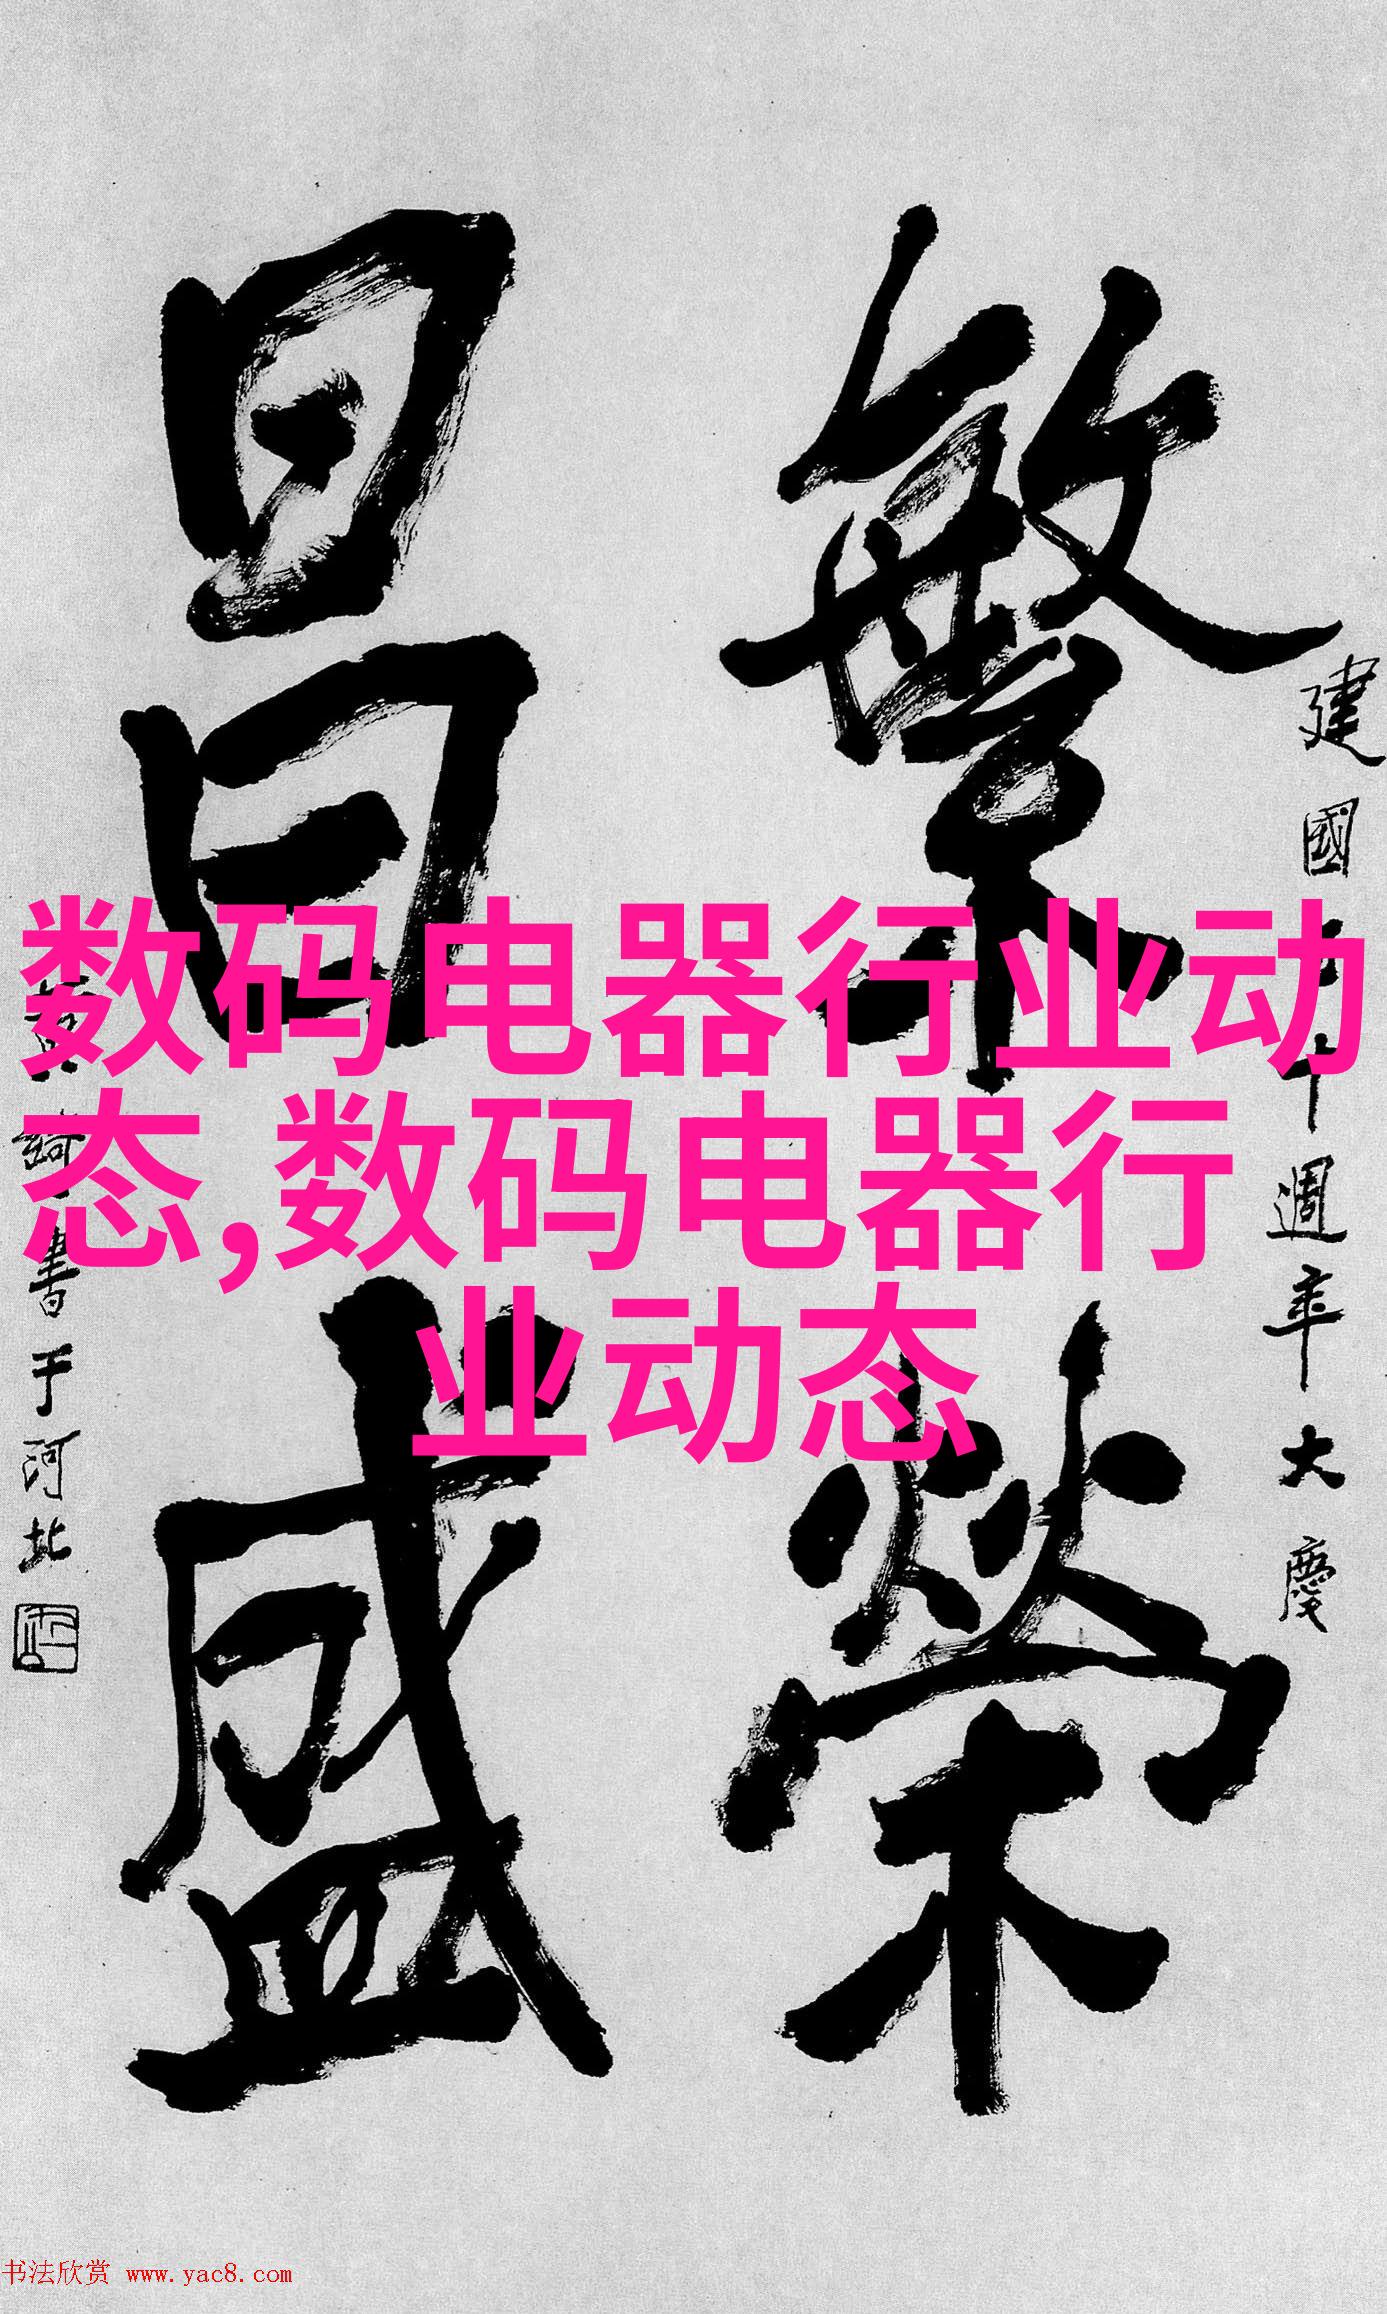 繁榮
昌盛
建國
十週年大慶
書于河北
数码电器行业动
态,数码电器行
业动态
书法欣赏 www.yac8.com